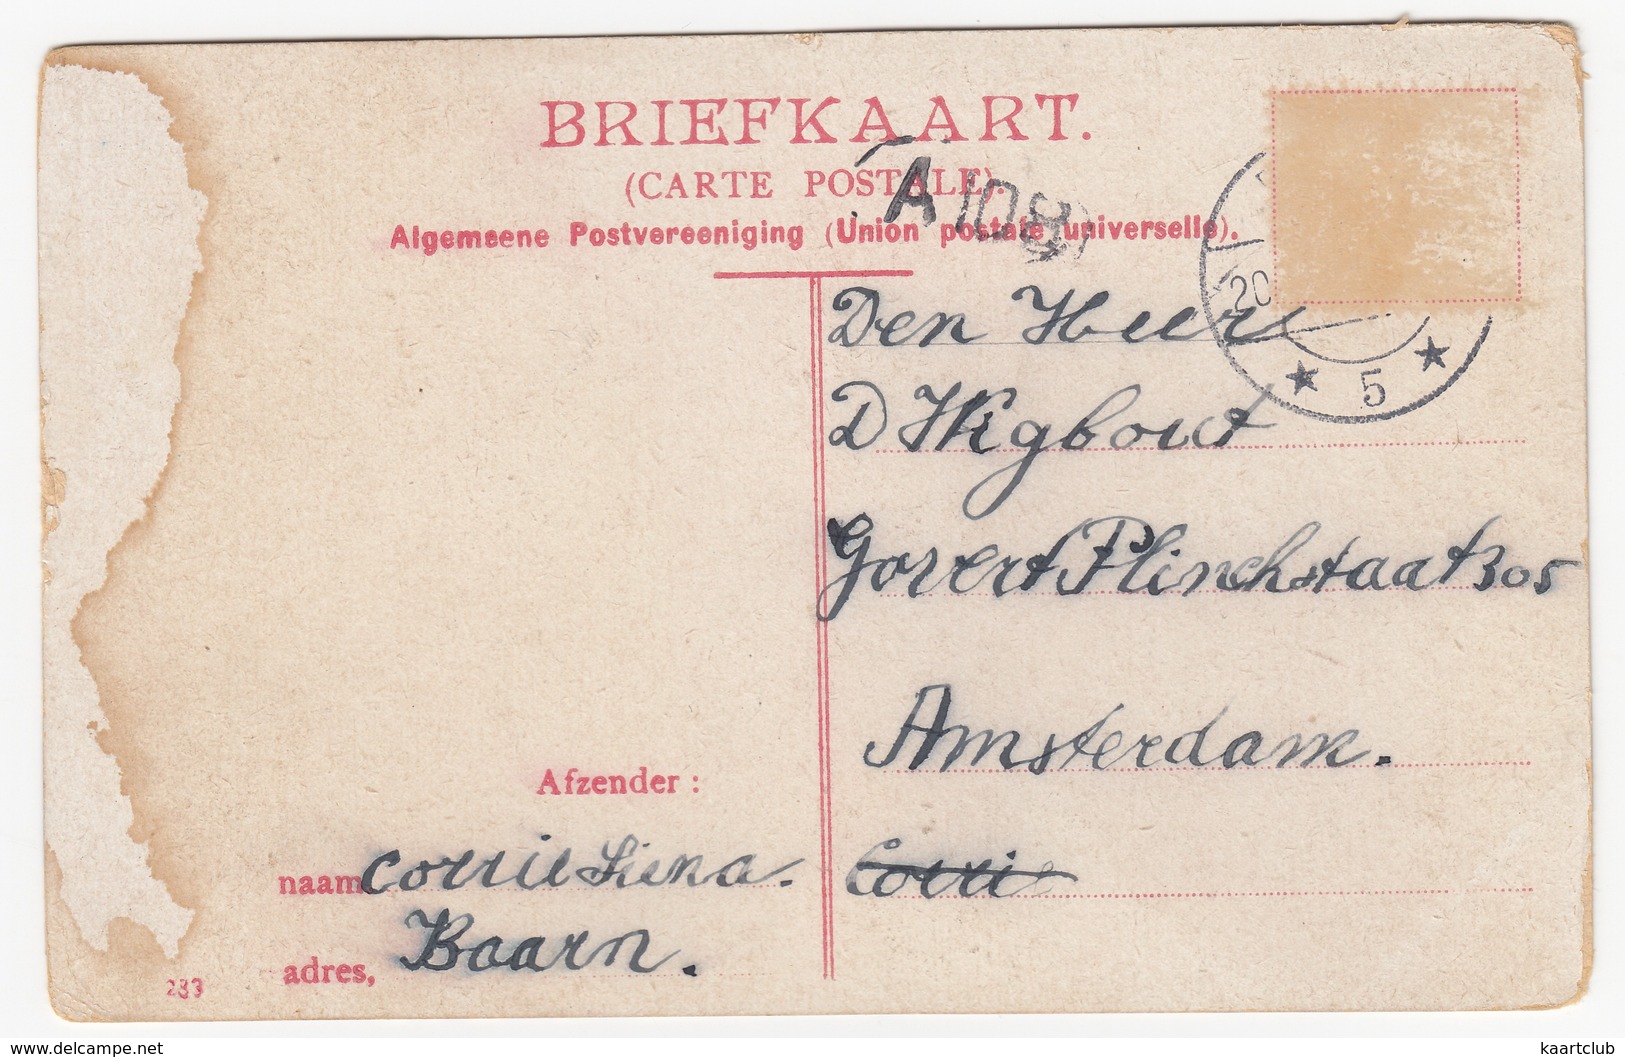 BRIEFKAART.
(CARTE POSTALE).
Algemeene Postvereeniging (Union postale universelle).
A 108
20
5
Den Heer
Govert Flinckstraat 305
Amsterdam.
Corrie
Afzender :
naam Corrie Liena.
adres, Baarn.
283
www.delcampe.net
kaartclub